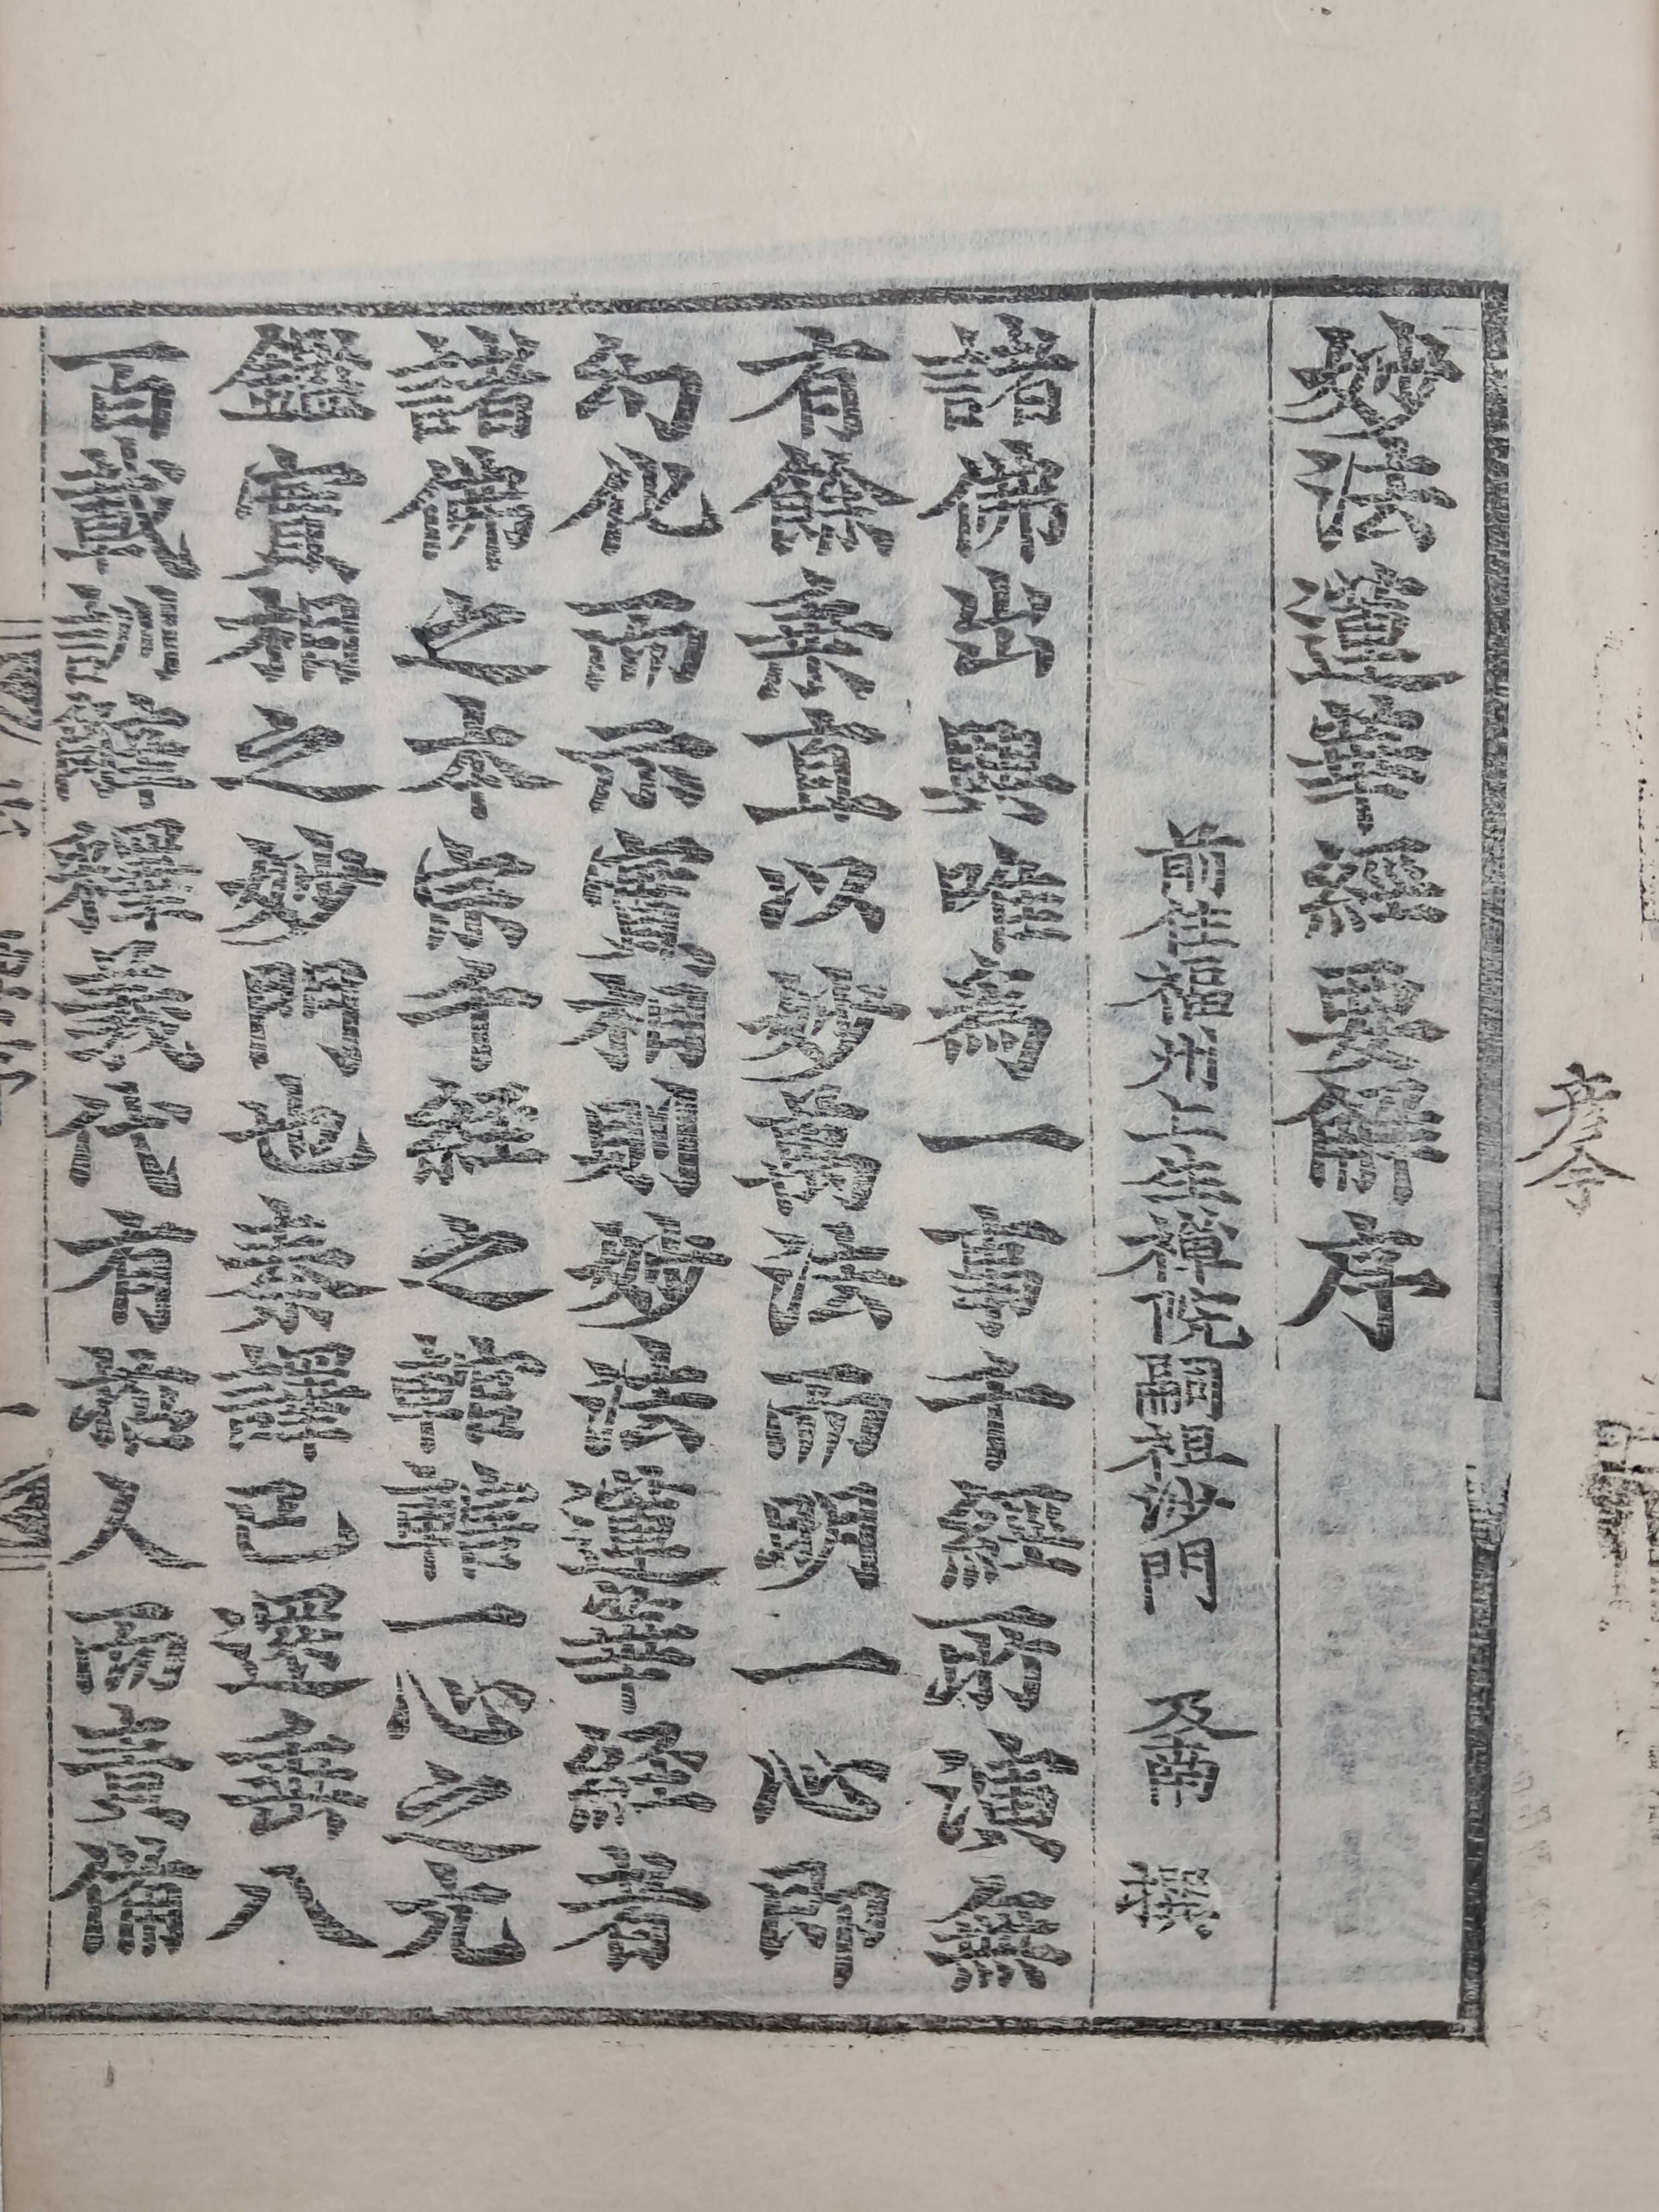 妙法蓮華經要解序
前住福州上生禪院嗣祖沙門 及南 撰
諸佛出興唯爲一事千經剖演無
有餘乘直以妙萬法而明一心即
幻化而示實相則妙法蓮華經者
諸佛之本宗千經之輨轄一心之元
鑑實相之妙門也秦譯已還垂八
百載訓釋行有人而責備